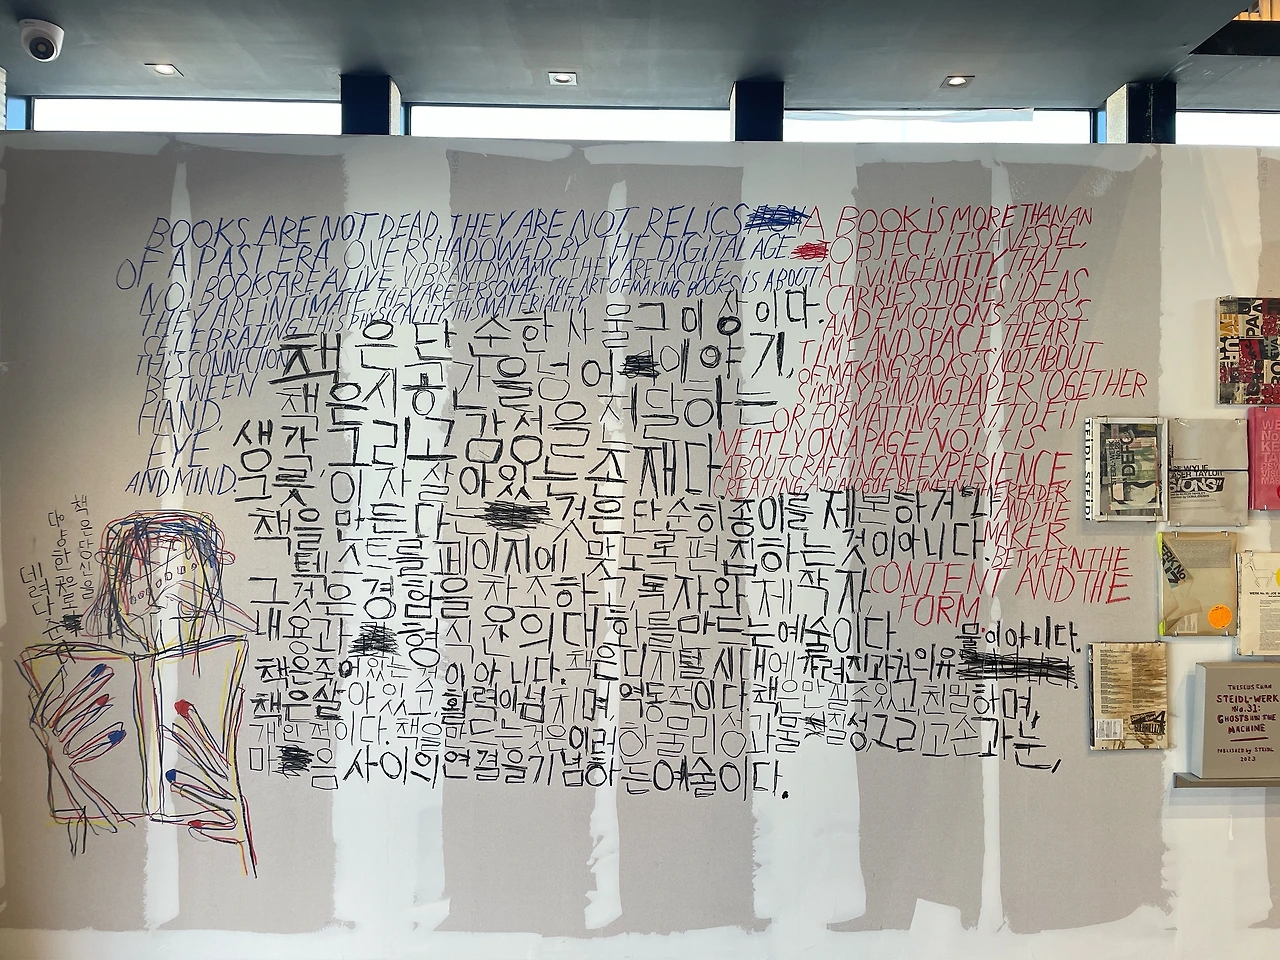 BOOKS ARE NOT DEAD, THEY ARE NOT RELiCS
OF A PAST ERA OVERSHADOWED BY THE DiGiTAL AGE
NO! BOOKS ARE ALIVE, VIBRANT, DYNAMIC, THEY ARE TACTILE,
THEY ARE INTIMATE, THEY ARE PERSONAL. THE ART OF MAKING BOOKS IS ABOUT
CELEBRATING THIS PHYSICALITY THIS MATERIALITY
THIS CONNECTION
BETWEEN
HAND,
EYE
AND MIND.
A BOOK iS MORE THAN AN
OBJECT, IT IS A VESSEL,
A LIVING ENTITY THAT
CARRIES STORIES, IDEAS,
AND EMOTIONS ACROSS
TIME AND SPACE. THE ART
OF MAKING BOOKS IS NOT ABOUT
SIMPLY BINDING PAPER TOGETHER
OR FORMATTING TEXT TO FIT
NEATLY ON A PAGE. NO! IT IS
ABOUT CRAFTING AN EXPERIENCE
CREATING A DIALOGUE BETWEEN THE READER
AND THE
MAKER
BETWEEN THE
CONTENT AND THE
FORM
책은 단순한 사물 그 이상이다.
책은 시공간을 넘어 이야기,
생각 그리고 감정을 전달하는
그릇이자 살아있는 존재다
책을 만드는 것은 단순히 종이를 제본하거나
텍스트를 페이지에 맞도록 편집하는 것이 아니다
그것은 경험을 창조하고 독자와 제작자
내용과 형식 의 대화를 만드는 예술이다.
책은 죽어있는 것이 아니다. 책은 디지털 시대에 가려진 과거의 유물이 아니다.
책은 살아있고 활력이 넘치며, 역동적이다. 책은 만질 수 있고 친밀하며,
개인적이다. 책을 만드는 것은 이러한 물리적 물성 그리고 손과 눈,
마음 사이의 연결을 기념하는 예술이다.
책은 당신을
다양한 곳으로
데려다준다
STEIDL-WERK
No.31:
GHOSTS IN THE
MACHINE
PUBLISHED by STEIDL
2023